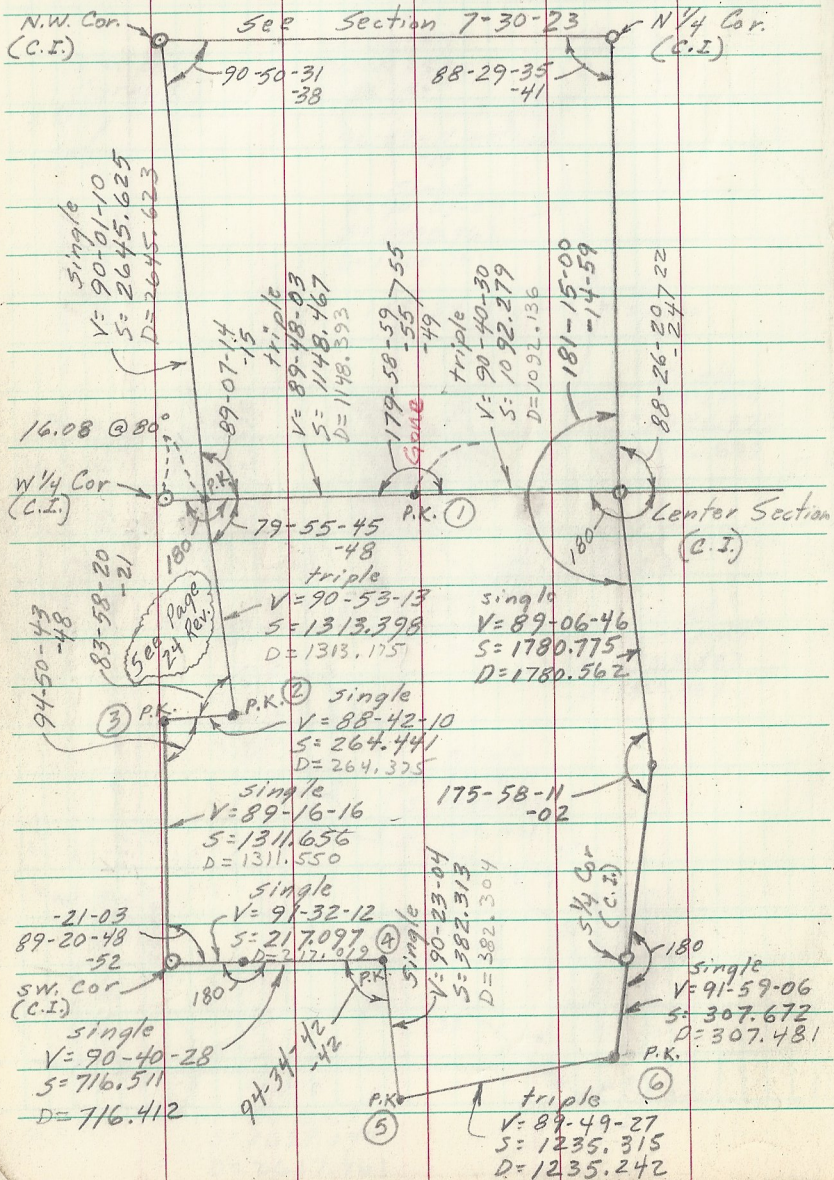 N.W. Cor.
(C.I.)
See Section 7-30-23
N 1/4 Cor.
(C.I.)
90-50-31
-38
88-29-35
-41
single
V= 90-01-10
S= 2645.625
D= 2645.623
89-07-14
-15
triple
V= 89-48-03
S= 1148.467
D= 1148.393
179-58-59
-55
-49
55
Gone
triple
V= 90-40-30
S= 1092.279
D= 1092.136
181-15-00
-14-59
88-26-20
-24
22
16.08 @ 80°
W 1/4 Cor
(C.I.)
P.K.
P.K. 1
Center Section
(C.I.)
180
180
79-55-45
-48
triple
V= 90-53-13
S= 1313.398
D= 1313.175
See Page
24 Rev.
single
V= 89-06-46
S= 1780.775
D= 1780.562
94-50-43
-48
83-58-20
-21
3 P.K.
P.K. 2
single
V= 88-42-10
S= 264.441
D= 264.375
175-58-11
-02
single
V= 89-16-16
S= 1311.656
D= 1311.550
-21-03
89-20-48
-52
SW. Cor
(C.I.)
single
V= 91-32-12
S= 217.097
D= 217.019
4
P.K.
180
single
V= 90-23-04
S= 382.313
D= 382.304
S 1/4 Cor
(C.I.)
180
single
V= 91-59-06
S= 307.672
D= 307.481
single
V= 90-40-28
S= 716.511
D= 716.412
94-34-42
-42
P.K.
5
P.K.
6
triple
V= 89-49-27
S= 1235.315
D= 1235.242